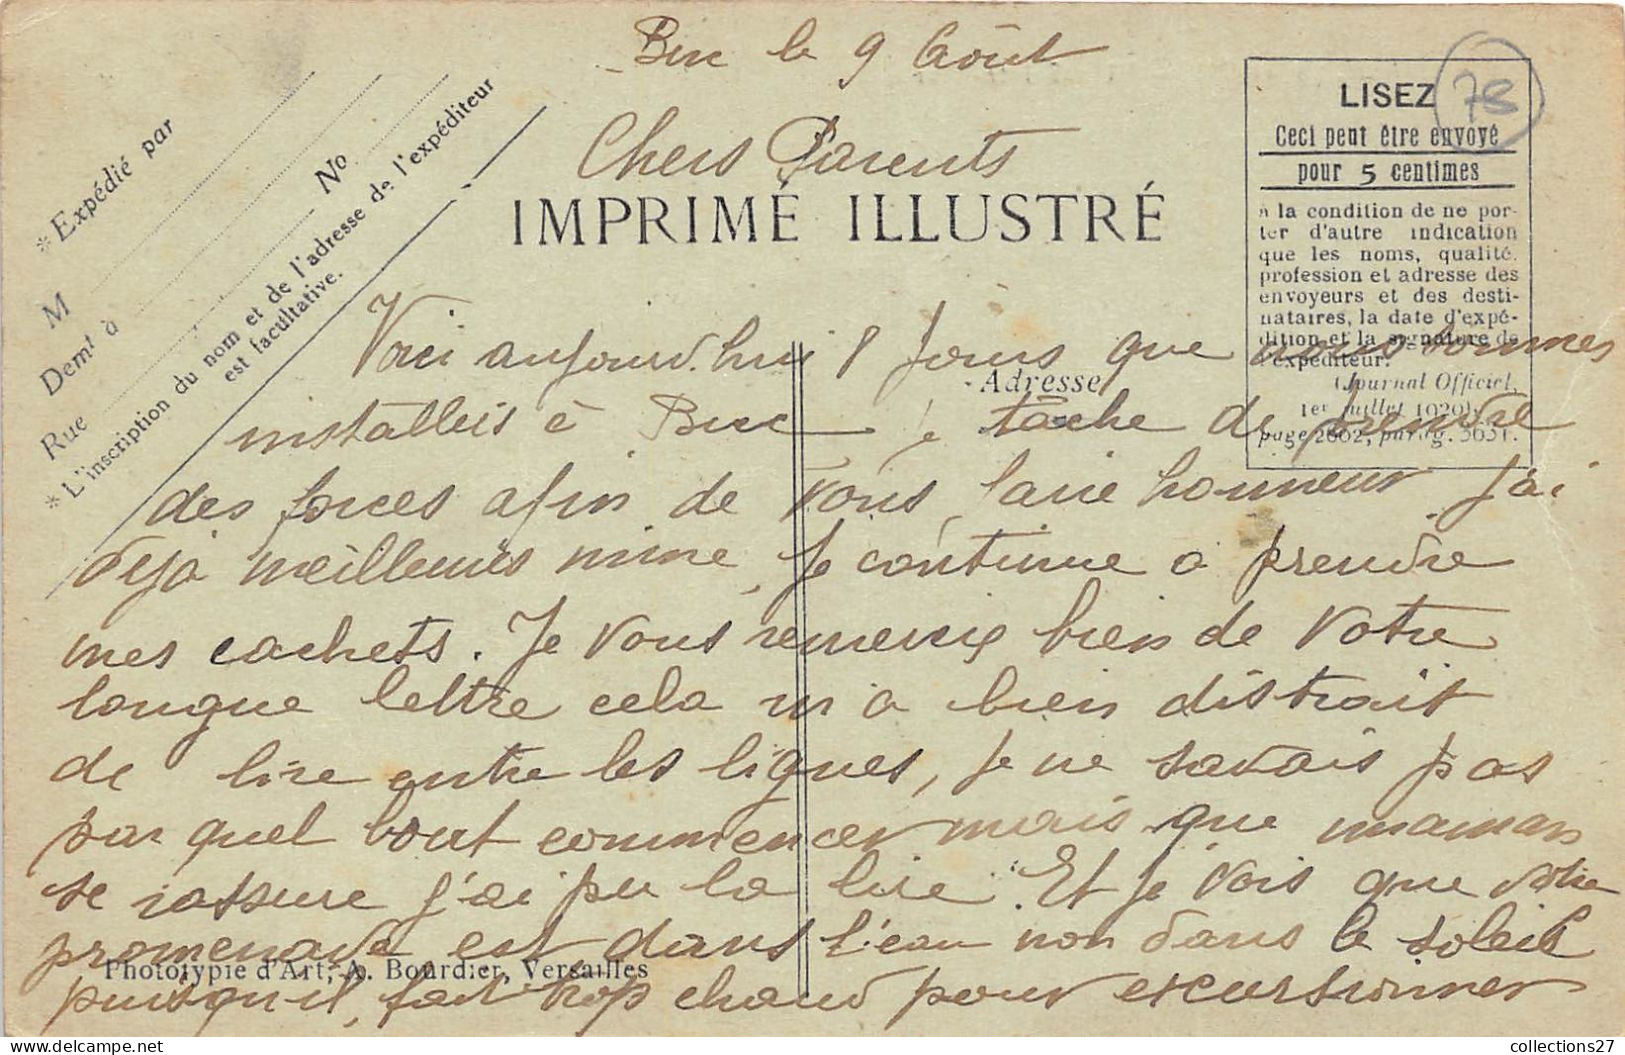 Buc le 9 Août
Chers Parents
IMPRIMÉ ILLUSTRÉ
* Expédié par
M
No
Demt à
Rue
* L'inscription du nom et de l'adresse de l'expéditeur
est facultative.
LISEZ
78
Ceci peut être envoyé
pour 5 centimes
à la condition de ne por-
ter d'autre indication
que les noms, qualité,
profession et adresse des
envoyeurs et des desti-
nataires, la date d'expé-
dition et la signature de
l'expéditeur.
(Journal Officiel,
1er Juillet 1920),
page 2662, parag. 3651.
Adresse
Voici aujourd'hui 8 jours que nous sommes
installés à Buc, je tâche de prendre
des forces afin de vous faire honneur j'ai
déjà meilleures mine, je continue a prendre
mes cachets. Je vous remercie bien de votre
longue lettre cela m'a bien distrait
de lire entre les lignes, je ne savais pas
par quel bout commencer mais que maman
se rassure j'ai pu la lire. Et je vois que votre
promenade est dans l'eau non dans le soleil
puisqu'il fait trop chaud pour excursionner
Phototypie d'Art, A. Bourdier, Versailles
collections27